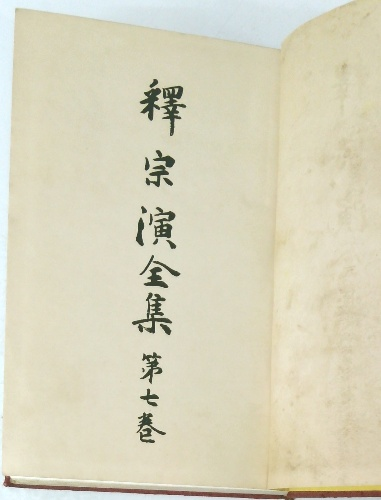 釋宗演全集 第七卷